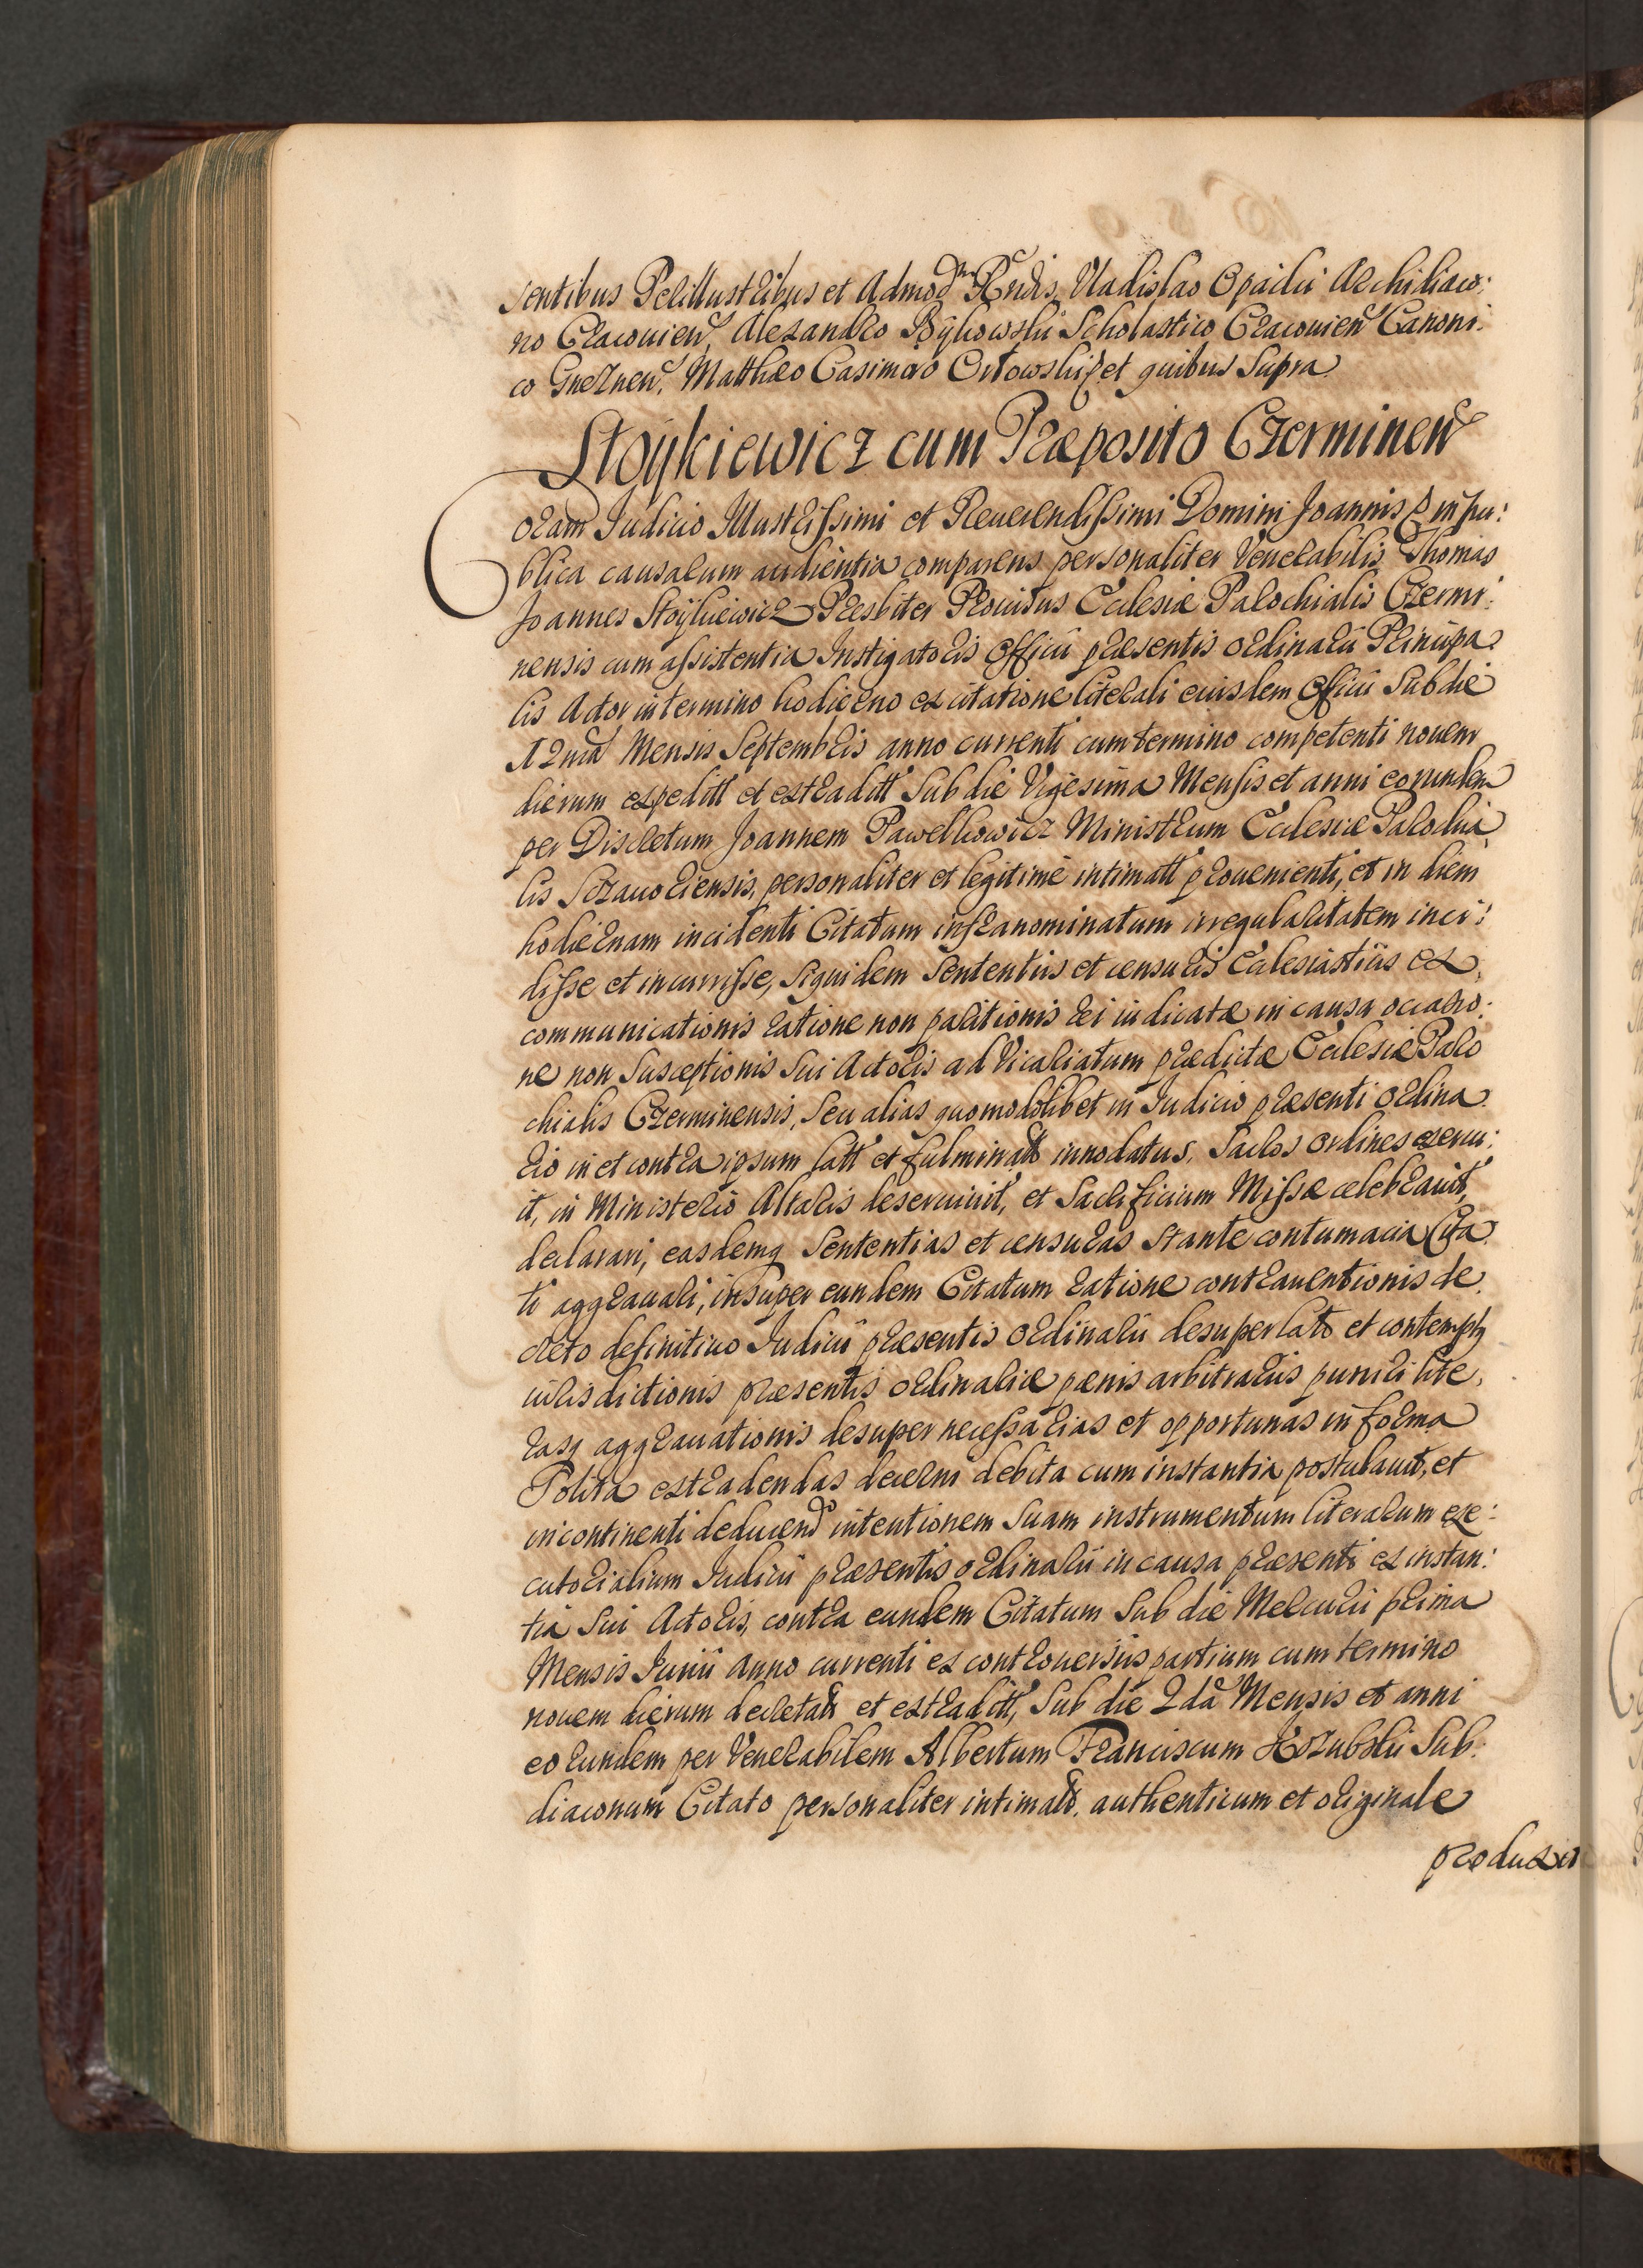 sentibus Perillustribus et Admodm Rndis Vladislao Opacki Archidiaco:
no Cracouien, Alexandro Bykowski Scholastico Cracouien Canoni:
co Gneznen, Matthæo Casimiro Ortowski et quibus Supra
Stoÿkiewicz cum Præposito Czerminen
Coram Judicio Illustrissimi et Reuerendissimi Domini Joannis in pu:
blica causarum audientia comparens personaliter Venerabilis Thomas
Joannes Stoÿkiewicz Presbiter Prouisus Ecclesiæ Parochialis Czermi:
nensis cum assistentia Instigatoris Officii præsentis ordinarii Principa
lis Actor in termino hodierno ex citatione literali eiusdem Officii Sub die
Mensis Septembris anno currenti cum termino competenti nouem
dierum expeditt et extraditt Sub die Vigesima Mensis et anni eorundem
per Discretum Joannem Pawelkowicz Ministrum Ecclesiæ Parochia
lis personaliter et legitime intimatt prouenienti, et in diem
hodiernam incidenti Citatum infranominatum irregularitatem inci:
disse et incurrisse, siquidem Sententiis et censuris Ecclesiasticis ex
communicationis ratione non paritionis rei iudicatæ in causa occasio:
ne non Susceptionis Sui Actoris ad Vicariatum prædictæ Ecclesiæ Paro
chialis Czerminensis, Seu alias quomodolibet in Judicio præsenti ordina
rio in et contra ipsum latt et fulminatt innodatus, Sacros ordines exercu:
it, in Ministerio Altaris deseruiuit, et Sacrificium Missæ celebrauit,
declarari, easdemq Sententias et censuras Stante contumacia Cita
ti aggrauari, insuper eundem Citatum ratione contrauentionis de
creto definitiuo Judicii præsentis Ordinarii desuper lato et contemptq
iurisdictionis præsentis ordinariæ pœnis arbitrariis puniri lite
rasq aggrauationis desuper necessarias et opportunas in forma
Solita extradendas decerni debita cum instantia postulauit, et
incontinenti deducend intentionem Suam instrumentum literarum exe:
cutorialium Judicii præsentis ordinarii in causa præsenti ex instan:
tia Sui Actoris, contra eundem Citatum Sub die Mercurii prima
Mensis Junii anno currenti ex controuersiis partium cum termino
nouem dierum decretatt et extraditt, Sub die 2da Mensis et anni
eorundem per Venerabilem Albertum Franciscum Sub:
diaconum Citato personaliter intimatt, authenticum et originale
produxit